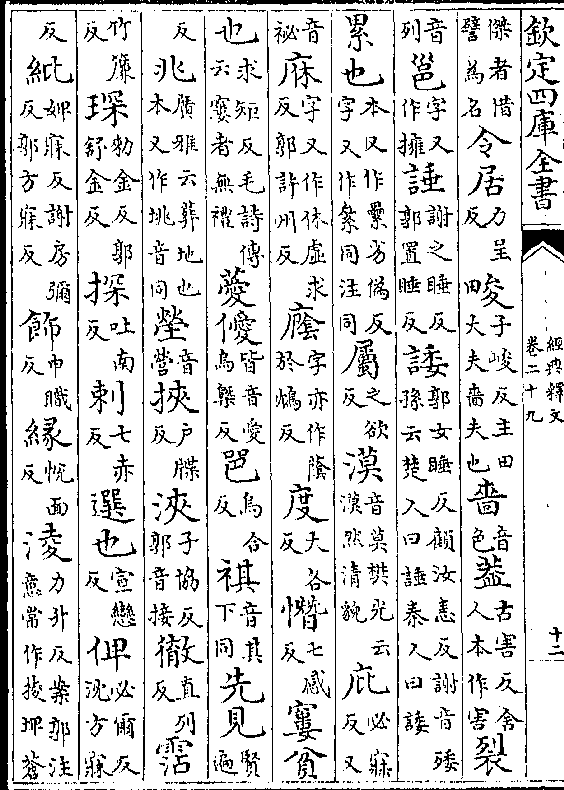 欽定四庫全書
經典釋文
卷二十九
十二
傑者借譬為名令居力呈反畯子峻反主田田大夫嗇夫也嗇音色葢古害反舍人本作害裂
音列邕字又作擁諈謝之睡反郭置睡反諉郭女睡反顧汝恚反謝音矮孫云楚人曰諈秦人曰諉
累也本又作纍劣偽反字又作絫同注同屬之欲反漠音莫樊光云漠然清貌庇必寐反又
音祕庥字又作休虛求反郭許州反廕字亦作蔭於鴆反度大各反憯七感反窶貧
也求矩反毛詩傳云窶者無禮薆僾皆音愛烏槩反邑烏合反祺音其下同先見賢遍
反兆廣雅云葬地也本又作垗音同塋音營挾戶牒反浹子協反郭音接徹直列反霑
竹簾反琛勑金反郭舒金反探吐南反刺七赤反選也宣戀反俾必爾反沈方寐反
反紕婢寐反謝房彌反郭方寐反飾巾職反縁悅面反淩力升反案郭注意當作㥄埤蒼